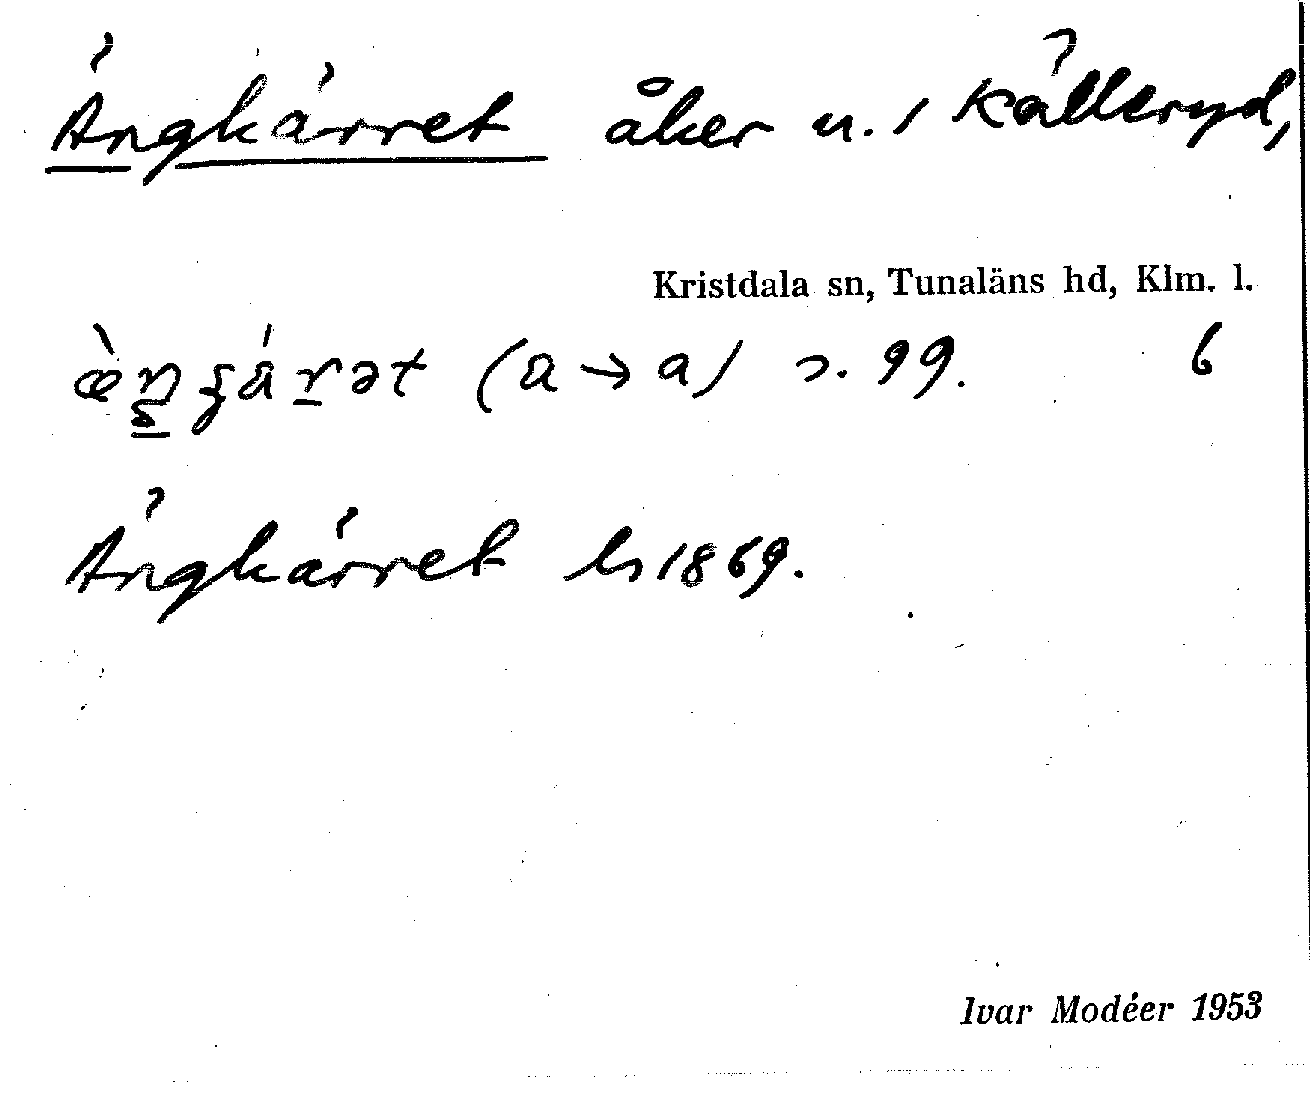 Ängkärret åker u. / Källeryd,
Kristdala sn, Tunaläns hd, Klm. l.
(a → a) s. 99. 6
Ängkärret ls 1869.
Ivar Modéer 1953